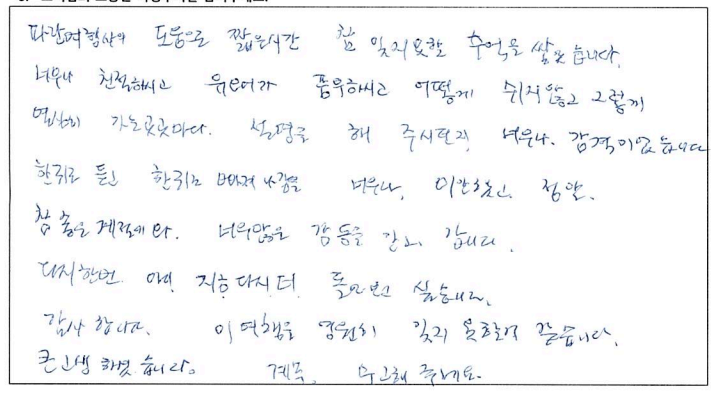 파란여행사의 도움으로 짧은시간 참 잊지못할 추억을 쌓았습니다.
너무나 친절하시고 유머가 풍부하시고 어떻게 쉬지않고 그렇게
열심히 가는곳곳마다. 설명을 해 주시던지 너무나. 감격이었습니다
한귀로 듣고 한귀로 빠져 나감을 너무나, 미안했고. 정말.
참 좋은 계절에 와. 너무많은 감동을 갖고. 갑니다.
다시한번 아내 지층 다시 더 돌아보고 싶습니다.
감사 합니다. 이 여행을 영원히 잊지 못할것 같습니다.
큰고생 하셨습니다. 계속, 수고해 주세요.